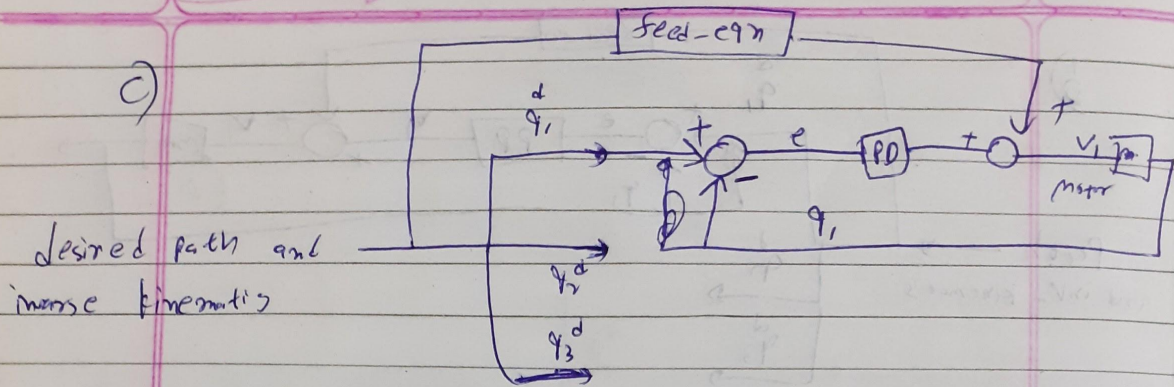 feed-eqn
C)
q₁ᵈ
+
e
PD
+
+
V₁
m
motor
-
q₁
desired path and
q₂ᵈ
inverse kinematis
q₃ᵈ